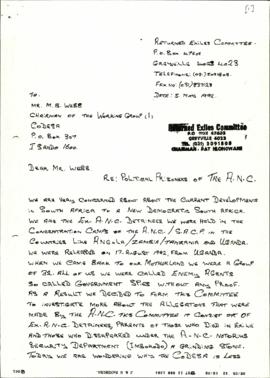 Returned Exiles Committee
P.O. Box
Greyville 4023
Telephone: (031)
Fax No (031)
Date: 5 May 1992.
To:
Mr. M.B. Webb
Chairman of the Working Group (1)
Codesa
P.O. Box 307.
Isando 1600.
Returned Exiles Committee
P.O. BOX
GREYVILLE 4023
TEL. (031) 3091808
CHAIRMAN - PAT HLONGWANE
Dear Mr. Webb.
Re: Political Prisoners of The A.N.C.
We are very concerned about about the current developments
in South Africa to a New Democratic South Africa.
We are the Ex. A.N.C. Detainees we were held in the
Concentration Camps of the A.N.C. / S.A.C.P. in the
Countries like Angola / Zambia / Tanzania and Uganda.
We were released on 17. August 1991 from Uganda.
When we came back to our Motherland we were a group
of 32. All of us we were called Enemy Agents
so called Government Spies without any proof.
As a result we decided to form this Committee
to investigate more about the allegations that were
made by the A.N.C. This Committee it consist out of
Ex. A.N.C. Detainees, Parents of those who died in Exile
and those who disappeared under the A.N.C. notorious
Security Department (Imbokodo) a Grinding Stone.
Today we are wondering why the Codesa is less